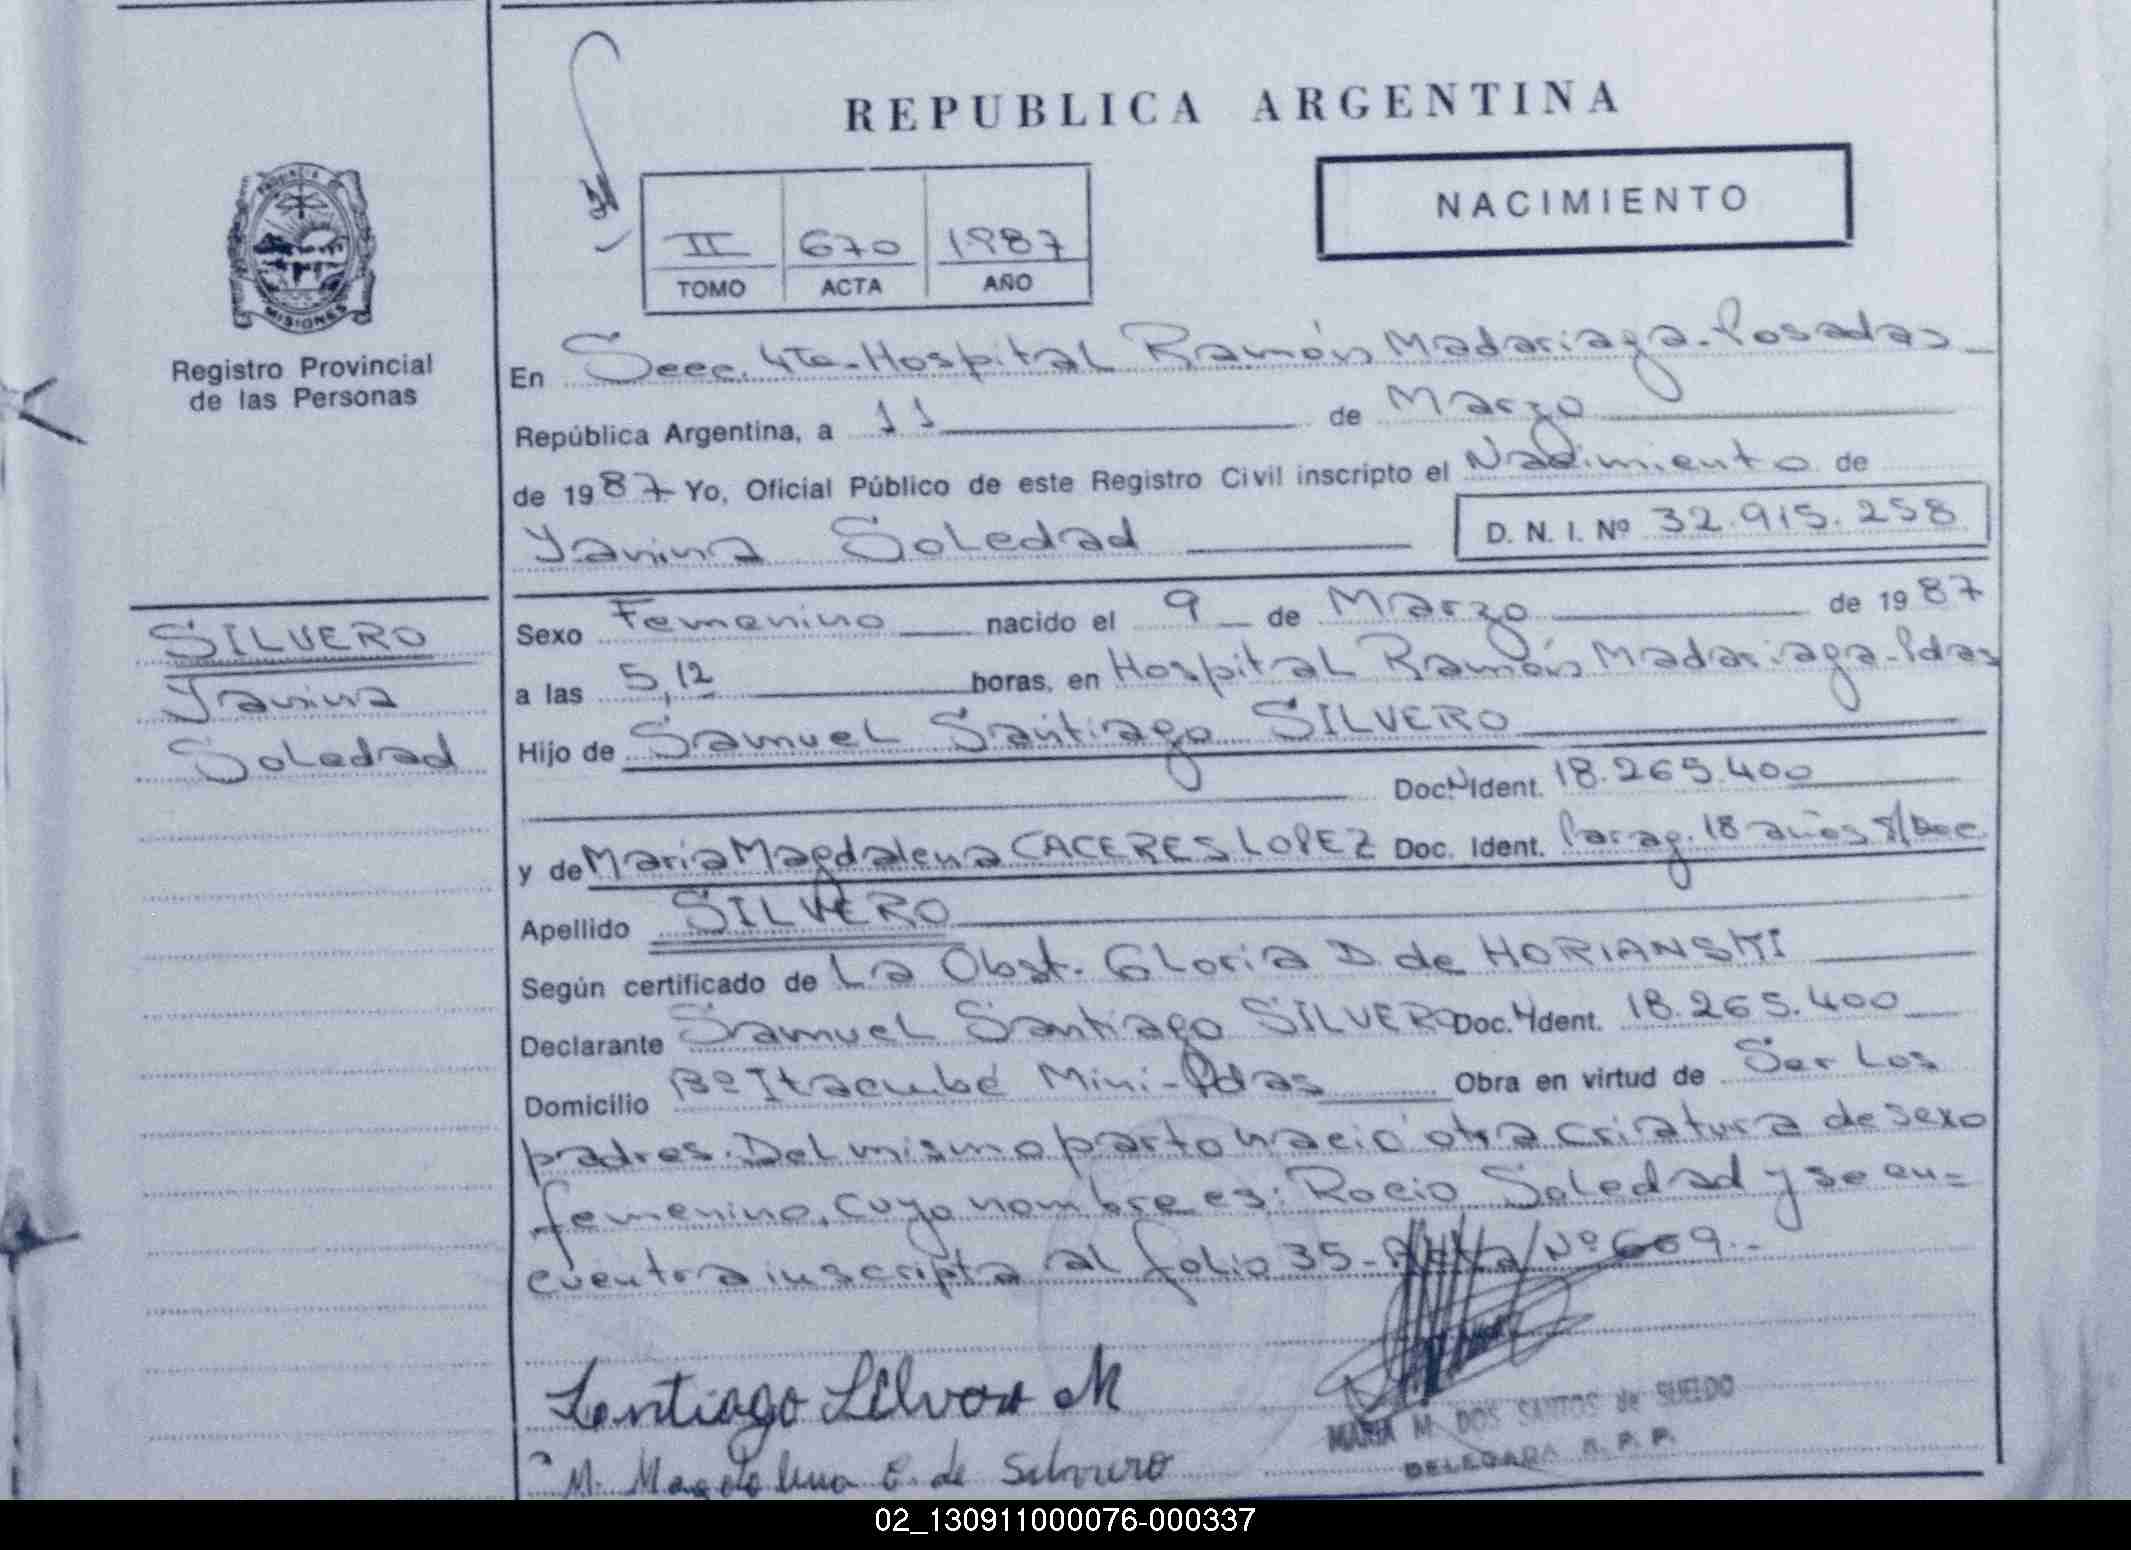 REPUBLICA ARGENTINA
NACIMIENTO
II 670 1987
TOMO ACTA AÑO
PROVINCIA DE
MISIONES
Registro Provincial
de las Personas
SILVERO
Yanina
Soledad
En Secc. 4ta-Hospital Ramón Madariaga-Posadas
República Argentina, a 11 de Marzo
de 1987 Yo, Oficial Público de este Registro Civil inscripto el Nacimiento de
Yanina Soledad D. N. I. Nº 32.915.258
Sexo Femenino nacido el 9 de Marzo de 1987
a las 5,12 horas, en Hospital Ramón Madariaga-Pdas
Hijo de Samuel Santiago SILVERO
Doc. N Ident. 18.265.400
y de María Magdalena CACERES LOPEZ Doc. Ident. Parag. 18 años s/Doc.
Apellido SILVERO
Según certificado de La Obst. Gloria D. de HORIANSKI
Declarante Samuel Santiago SILVERO Doc. Ident. 18.265.400
Domicilio Bº Itaembé Mini-Pdas Obra en virtud de Ser Los
padres. Del mismo parto nació otra criatura de sexo
femenino, cuyo nombre es: Rocio Soledad y se en=
cuentra inscripta al folio 35-Acta Nº 669.-
Santiago Silvero M
M. Magdalena C. de Silvero
MARIA M. DOS SANTOS de SUELDO
DELEGADA R. P. P.
02_130911000076-000337